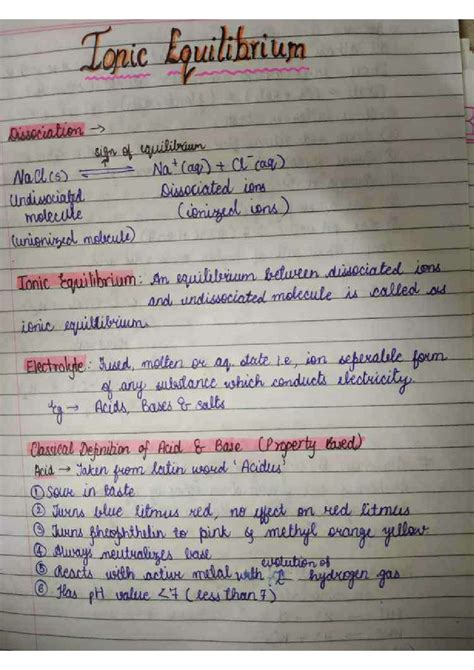 Ionic Equilibrium
Dissociation →
sign of equilibrium
NaCl(s) ⇌ Na⁺(aq) + Cl⁻(aq)
Undissociated Dissociated ions
molecule (ionized ions)
(unionized molecule)
Ionic Equilibrium: An equilibrium between dissociated ions
and undissociated molecule is called as
ionic equillibrium.
Electrolyte: Fused, molten or aq. state i.e, ion seperable form
of any substance which conducts electricity.
Eg → Acids, Bases & salts
Classical Definition of Acid & Base (Property Based)
Acid → Taken from latin word 'Acidus'
① Sour in taste
② Turns blue litmus red, no effect on red litmus
③ Turns pheophthelin to pink & methyl orange yellow.
④ Always neutralizes base
⑤ Reacts with active metal with evolution of hydrogen gas
⑥ Has pH value <7 (less than 7)